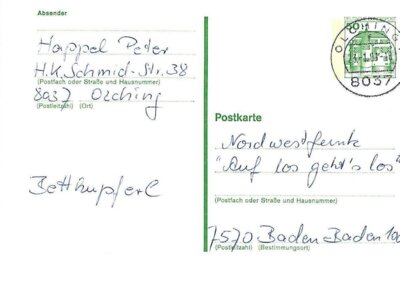 Absender
Happel Peter
H.K.Schmid-Str.38
(Postfach oder Straße und Hausnummer)
8037 Olching
(Postleitzahl) (Ort)
Betthupferl
OLCHING 1
8037
Postkarte
Nordwestfunk
"Auf los geht's los"
(Postfach oder Straße und Hausnummer)
7570 Baden-Baden 100
(Postleitzahl) (Bestimmungsort)